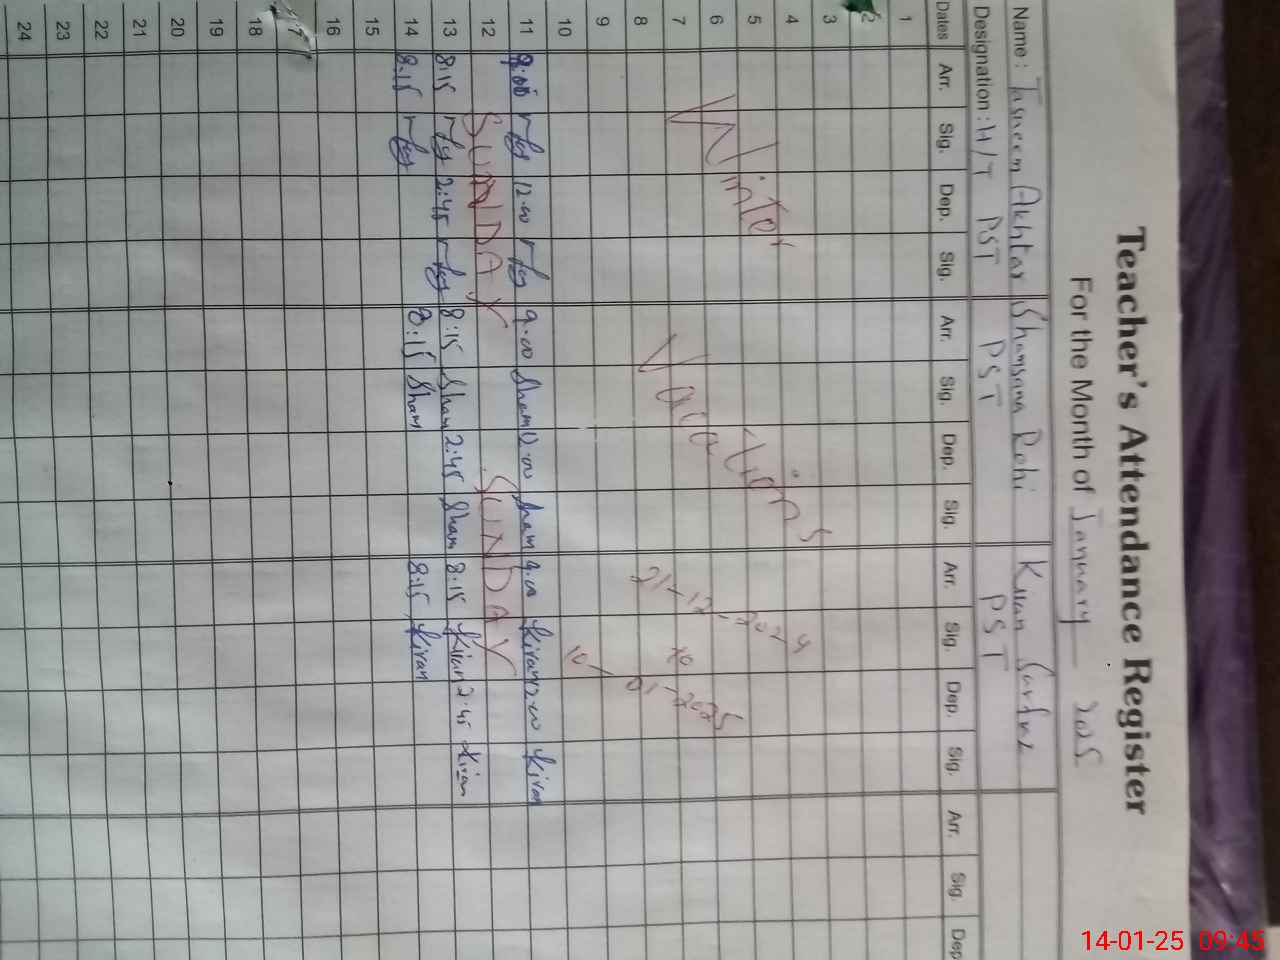 Teacher's Attendance Register
For the Month of January 2025
Name: Tasneem Akhtar Shamsana Rehi Kiran Sarfraz
Designation: H/T PST PST PST
Dates Arr. Sig. Dep. Sig. Arr. Sig. Dep. Sig. Arr. Sig. Dep. Sig. Arr. Sig. Dep
1
2
3
4
5
6
7
8
9
10
Winter Vacations 21-12-2024
to
10-01-2025
11 8:00 12.00 9.00 Sham 12.00 Sham 9.00 Kiran 12.00 Kiran
12 SUNDAY SUNDAY
13 8:15 2:45 8:15 Sham 2:45 Sham 8:15 Kiran 2:45 Kiran
14 8:15 8:15 Sham 8:15 Kiran
15
16
17
18
19
20
21
22
23
24
14-01-25 09:45